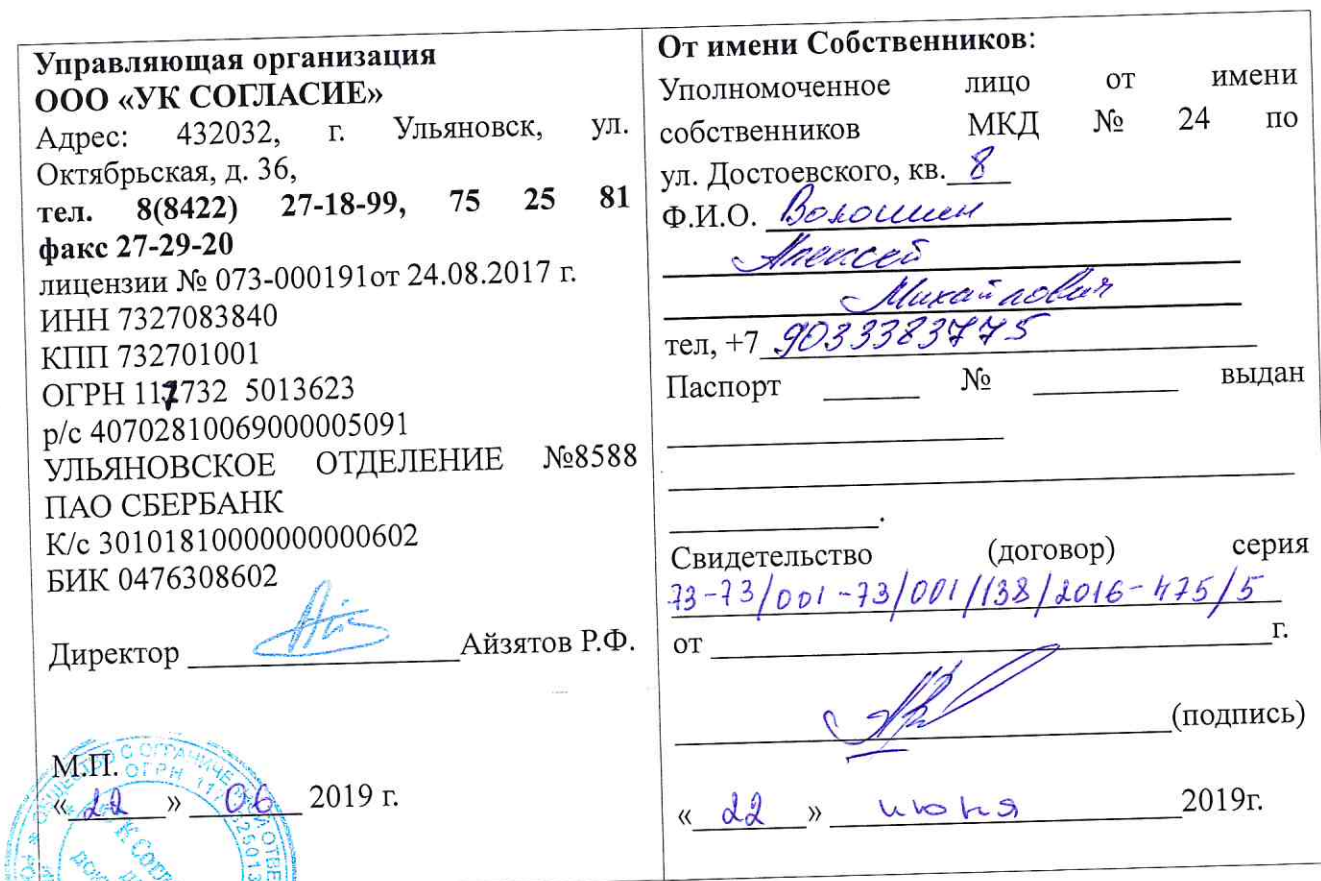 Управляющая организация
ООО «УК СОГЛАСИЕ»
Адрес: 432032, г. Ульяновск, ул.
Октябрьская, д. 36,
тел. 8(8422) 27-18-99, 75 25 81
факс 27-29-20
лицензии № 073-000191от 24.08.2017 г.
ИНН 7327083840
КПП 732701001
ОГРН 117732 5013623
р/с 40702810069000005091
УЛЬЯНОВСКОЕ ОТДЕЛЕНИЕ №8588
ПАО СБЕРБАНК
К/с 30101810000000000602
БИК 0476308602
Директор Айзятов Р.Ф.
М.П.
«22» 06 2019 г.
От имени Собственников:
Уполномоченное лицо от имени
собственников МКД № 24 по
ул. Достоевского, кв. 8
Ф.И.О. Волошин
Алексей
Михайлович
тел, +7 9033383775
Паспорт № выдан
Свидетельство (договор) серия
73-73/001-73/001/138/2016-475/5
от г.
(подпись)
«22» июня 2019г.